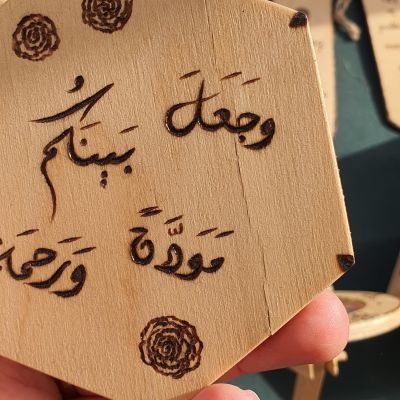 وَجَعَلَ بَيْنَكُم
مَوَدَّةً وَرَحمَة